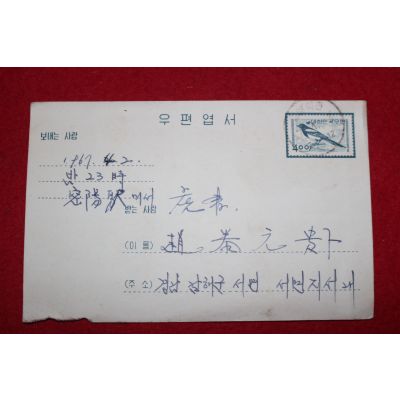 우편엽서
대한민국우표
400
보내는 사람
1967. 4. 2.
밤 23時
密陽駅에서
받는 사람
(이 름) 趙 泰 元 貴下
(주 소) 경남 남해군 서면 서면지서내